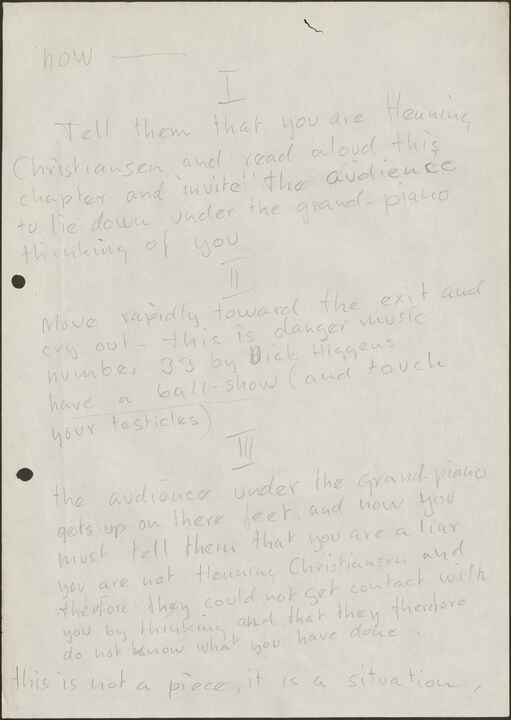 now ———
I
Tell them that you are Henning
Christiansen and read aloud this
chapter and invite the audience
to lie down under the grand-piano
thinking of you
II
Move rapidly toward the exit and
cry out - this is danger music
number 33 by Dick Higgens
have a ball-show (and touch
your testicles)
III
the audience under the grand-piano
gets up on there feet, and now you
must tell them that you are a liar
you are not Henning Christiansen and
therfore they could not get contact with
you by thinking and that they therfore
do not know what you have done.
this is not a piece, it is a situation,